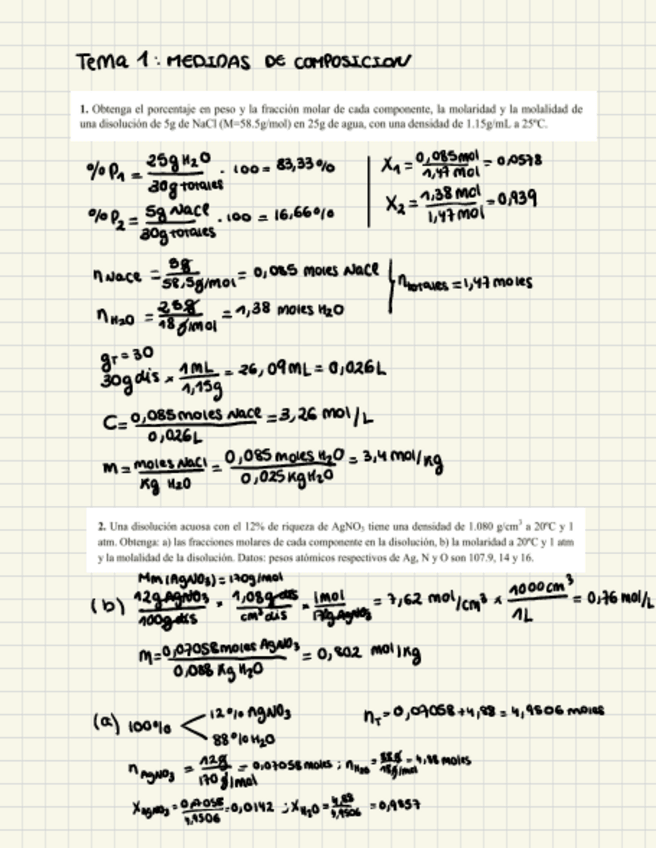 Tema 1: MEDIDAS DE COMPOSICION
1. Obtenga el porcentaje en peso y la fracción molar de cada componente, la molaridad y la molalidad de
una disolución de 5g de NaCl (M=58.5g/mol) en 25g de agua, con una densidad de 1.15g/mL a 25ºC.
%P₁ = 25g H₂O / 30g totales · 100 = 83,33%
X₁ = 0,085mol / 1,47 mol = 0,0578
%P₂ = 5g NaCl / 30g totales · 100 = 16,66%
X₂ = 1,38 mol / 1,47 mol = 0,939
n NaCl = 5g / 58,5g/mol = 0,085 moles NaCl
n H₂O = 25g / 18 g/mol = 1,38 moles H₂O
n totales = 1,47 moles
gr = 30
30g dis × 1mL / 1,15g = 26,09mL = 0,026L
C = 0,085 moles NaCl / 0,026L = 3,26 mol/L
m = moles NaCl / Kg H₂O = 0,085 moles H₂O / 0,025 Kg H₂O = 3,4 mol/Kg
2. Una disolución acuosa con el 12% de riqueza de AgNO₃ tiene una densidad de 1.080 g/cm³ a 20ºC y 1
atm. Obtenga: a) las fracciones molares de cada componente en la disolución, b) la molaridad a 20ºC y 1 atm
y la molalidad de la disolución. Datos: pesos atómicos respectivos de Ag, N y O son 107.9, 14 y 16.
Mm (AgNO₃) = 170g/mol
(b) 12g AgNO₃ / 100g dis × 1,08g dis / cm³ dis × 1mol / 170g AgNO₃ = 7,62 mol/cm³ × 1000 cm³ / 1L = 0,76 mol/L
m = 0,07058 moles AgNO₃ / 0,088 Kg H₂O = 0,802 mol/Kg
(a) 100% < 12% AgNO₃
88% H₂O
nT = 0,07058 + 4,88 = 4,9506 moles
n AgNO₃ = 12g / 170 g/mol = 0,07058 moles ; n H₂O = 88g / 18g/mol = 4,88 moles
X AgNO₃ = 0,07058 / 4,9506 = 0,0142 ; X H₂O = 4,88 / 4,9506 = 0,9857